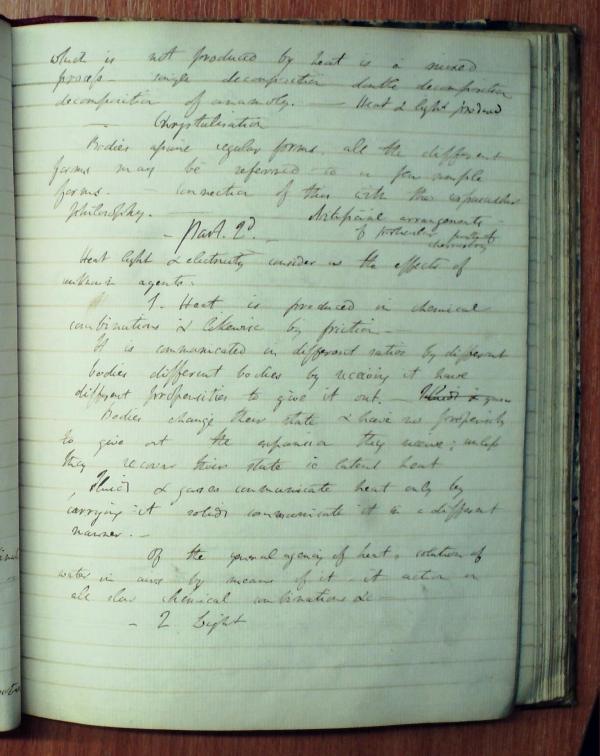 which is not produced by heat is a mixed
process – single decomposition double decomposition
decomposition of ammonia. — Heat & light produced
– Chrystalisation
Bodies assume regular forms. all the different
forms may be referred to a few simple
forms. — connection of this with the corpuscular
philosophy. — Artificial arrangements –
– Part. 2d. – of particular parts of
chemistry
Heat light & electricity consider as the effects of
unknown agents.
1. Heat is produced in chemical
combinations & likewise by friction. –
It is communicated in different ratios by different
bodies different bodies by receiving it have
different propensities to give it out. – Fluids & gases
Bodies change their state & have no propensity
to give out the expansion they receive; unless
they recover their state is latent heat
Fluids & gases communicate heat only by
carrying it solids communicate it in a different
manner. –
Of the general agency of heat, solution of
water in by means of it – it action in
all slow chemical combinations &c —
– 2 Light